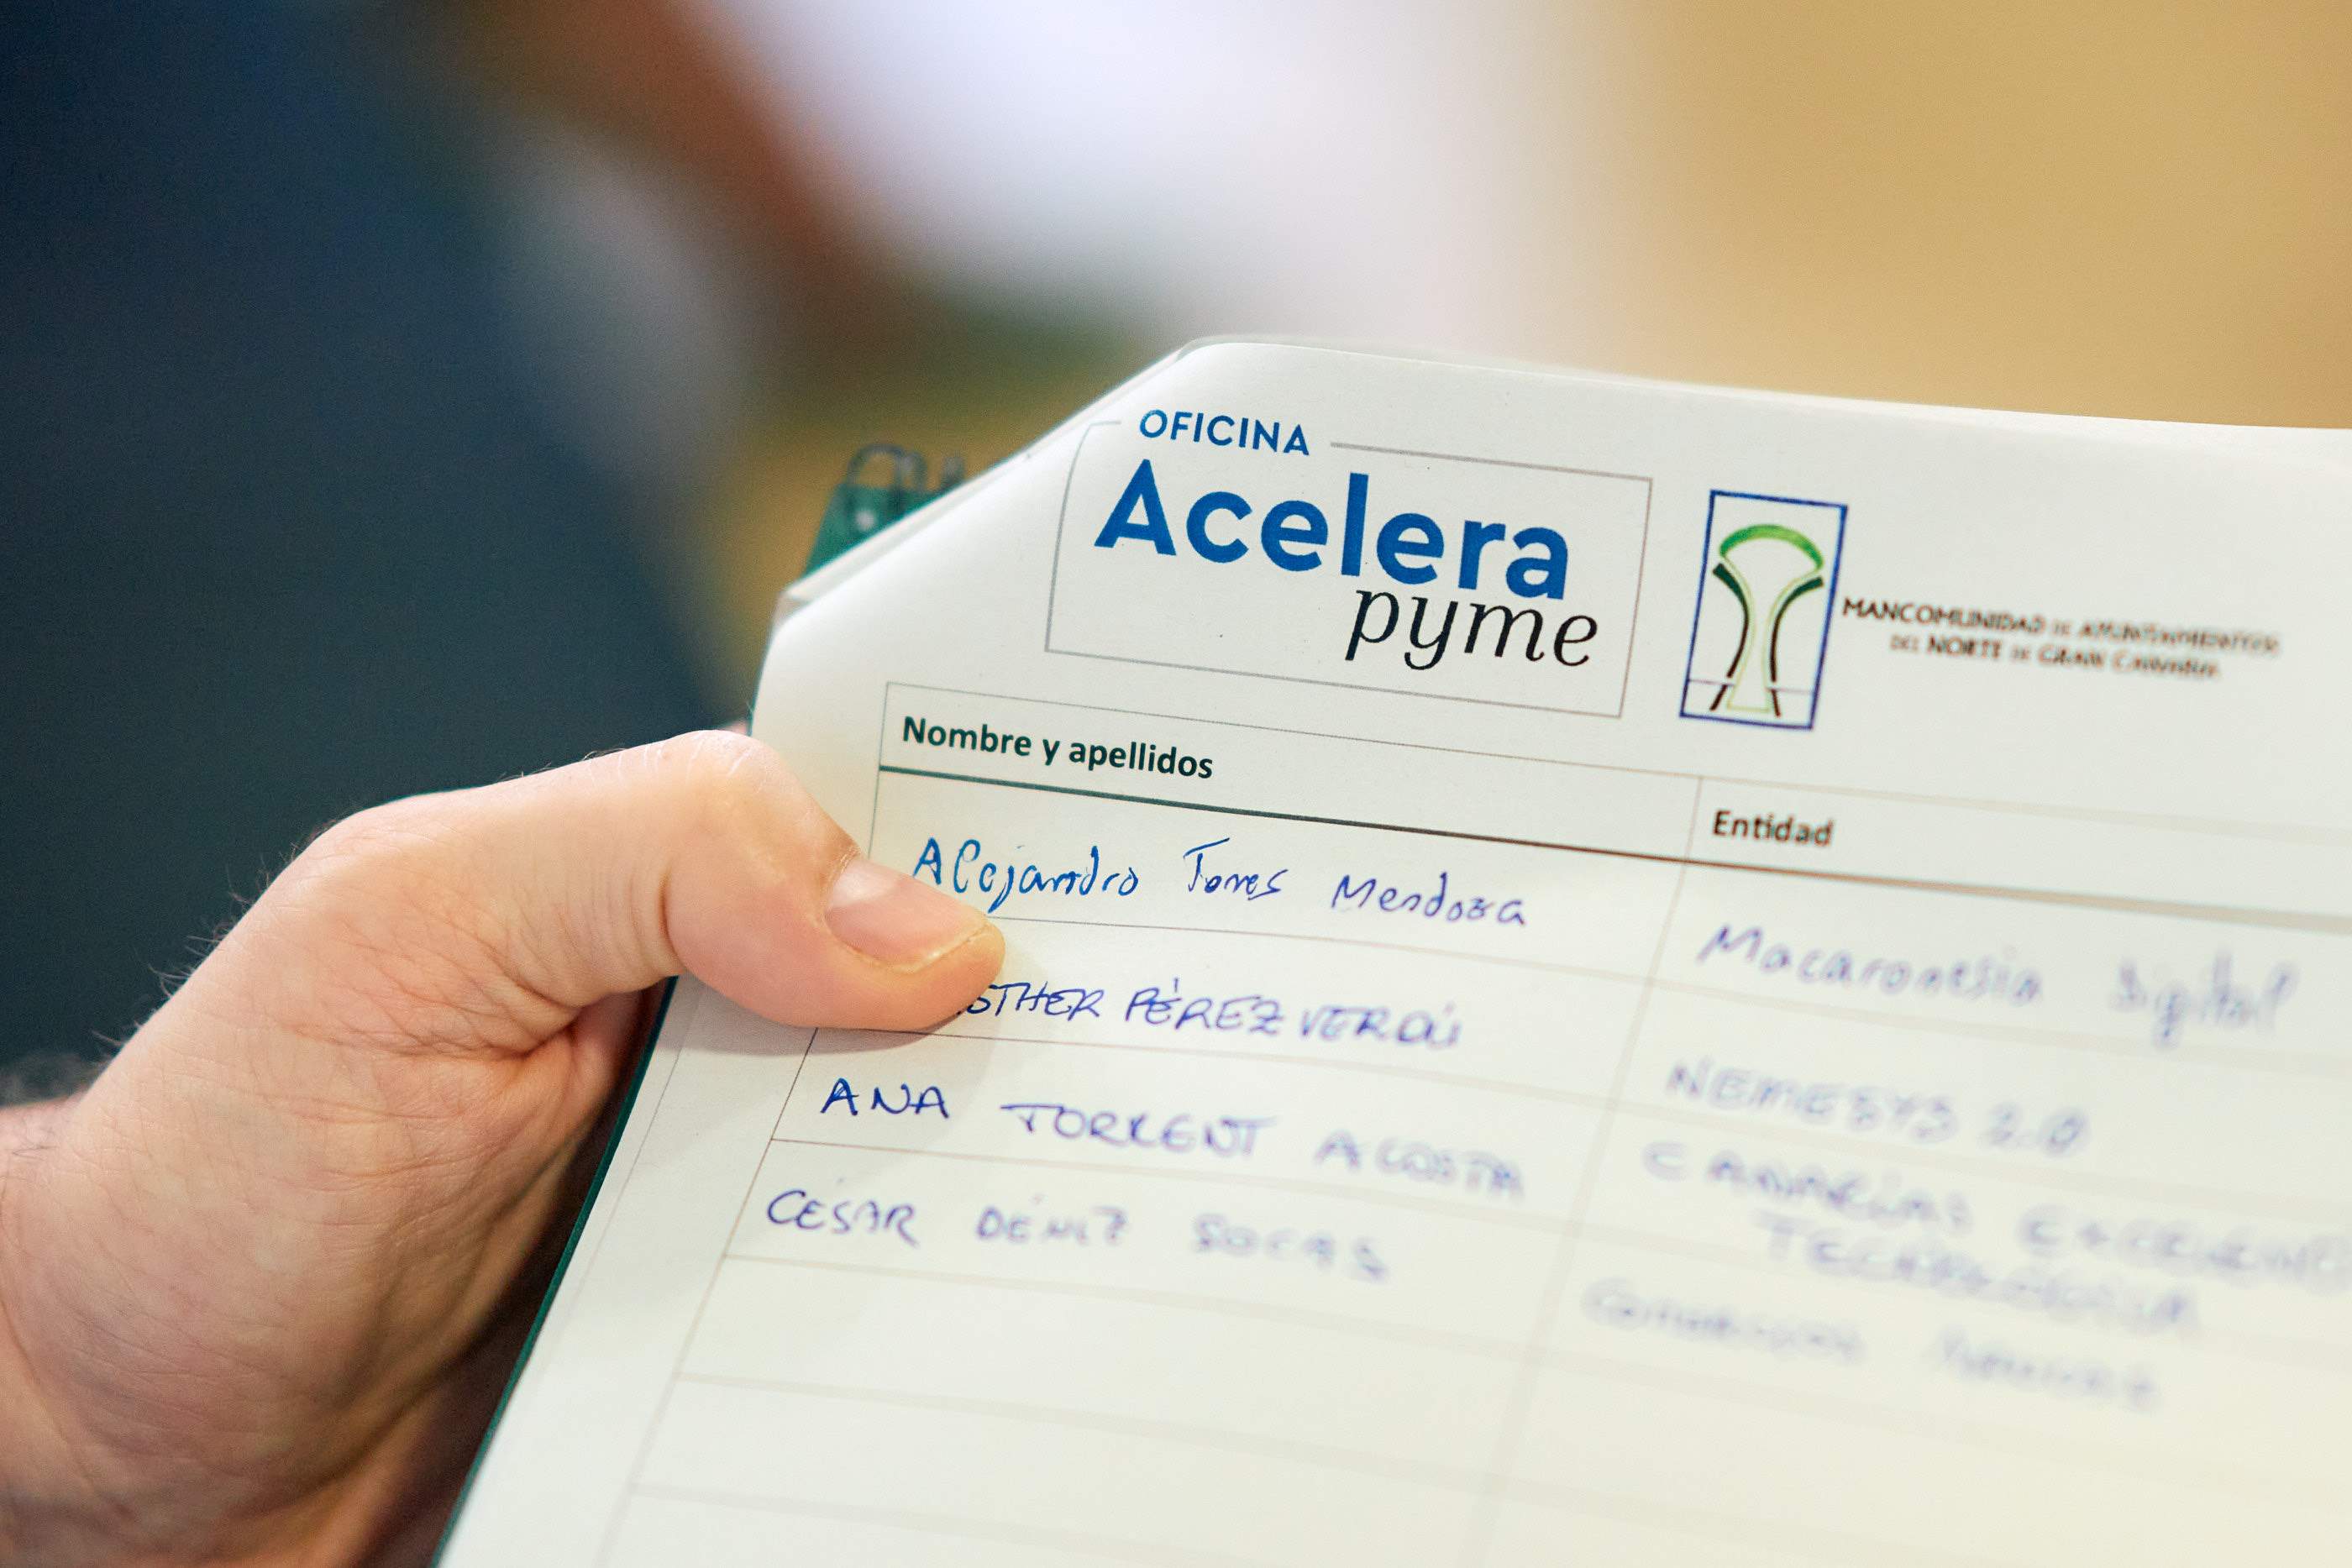 OFICINA
Acelera
pyme
MANCOMUNIDAD DE AYUNTAMIENTOS
DEL NORTE DE GRAN CANARIA
Nombre y apellidos Entidad
Alejandro Torres Mendoza Macaronesia Digital
STHER PÉREZ VERDÚ NEMESYS 2.0
ANA TORRENT ACOSTA CANARIAS
TECNOLOGIA
CÉSAR DÉNIZ SOCAS